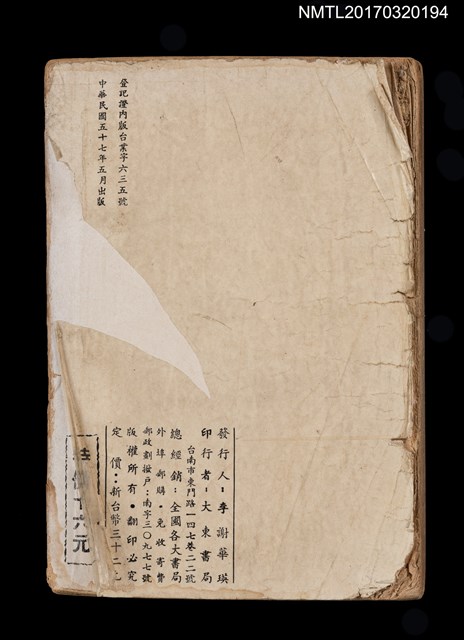 NMTL20170320194
登記證內版台業字六三五號
中華民國五十七年五月出版
發行人：李謝華瑛
印行者：大東書局
台南市東門路一四七巷二二號
總經銷：全國各大書局
外埠郵購・免收寄費
郵政劃撥戶：南字三〇九七七號
版權所有・翻印必究
定價：新台幣三十二元
特價十六元